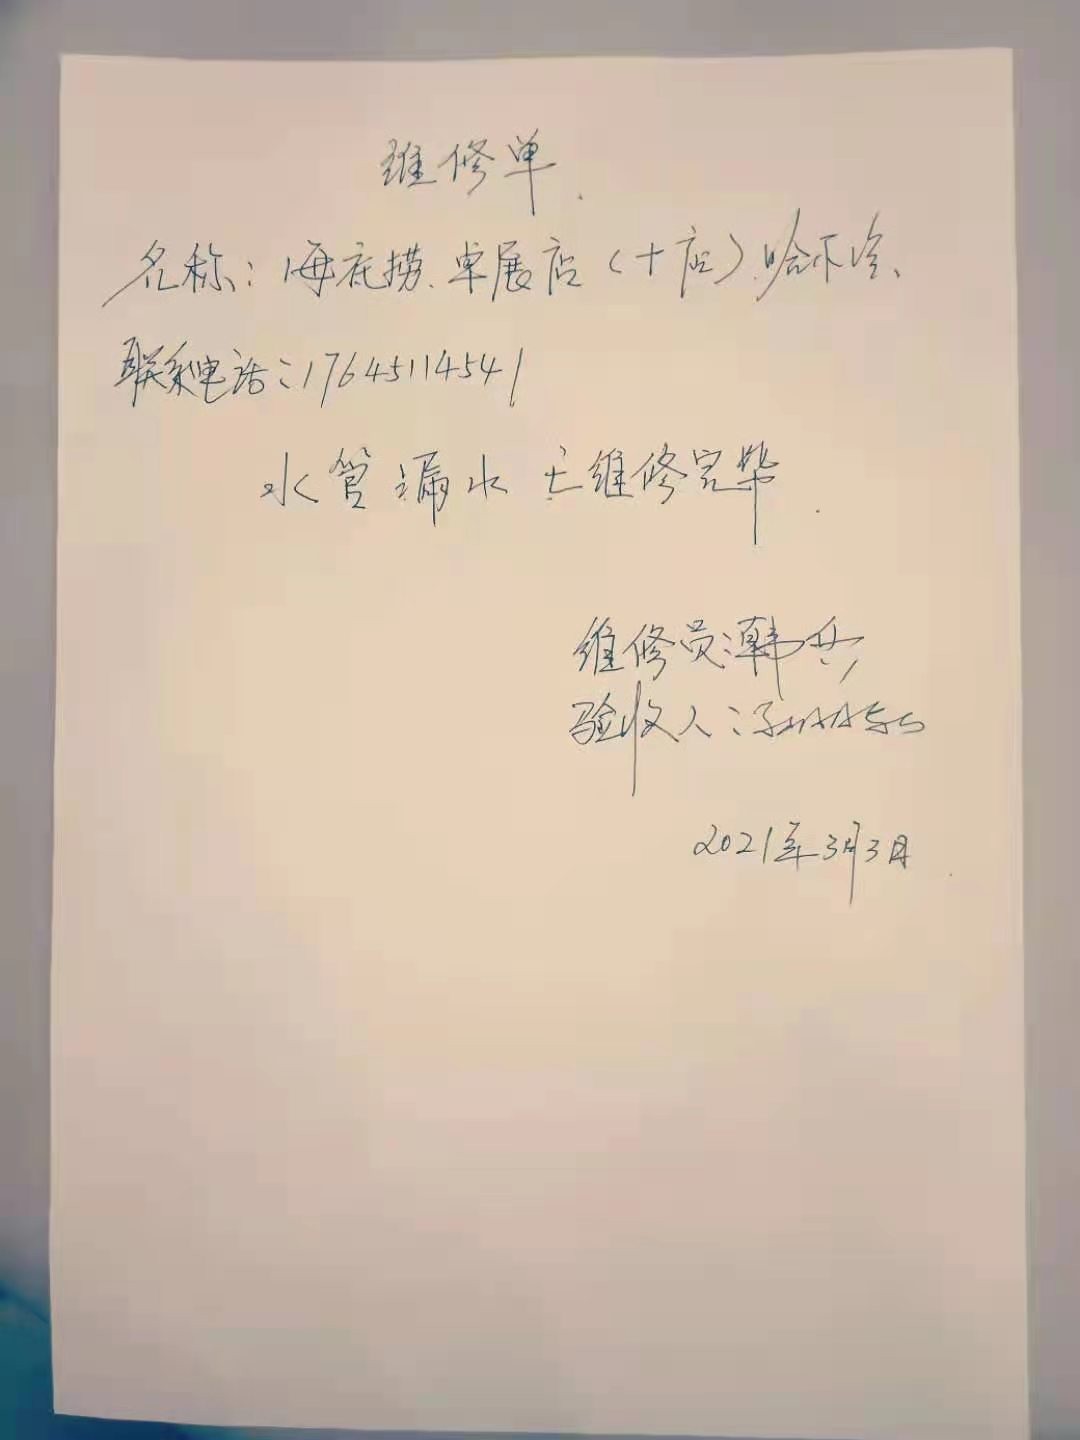 维修单.
名称：海底捞、卓展店（十店）.哈尔滨、
联系电话：17645114541
水管漏水 已维修完毕.
维修员：韩兵
验收人：
2021年3月3日.